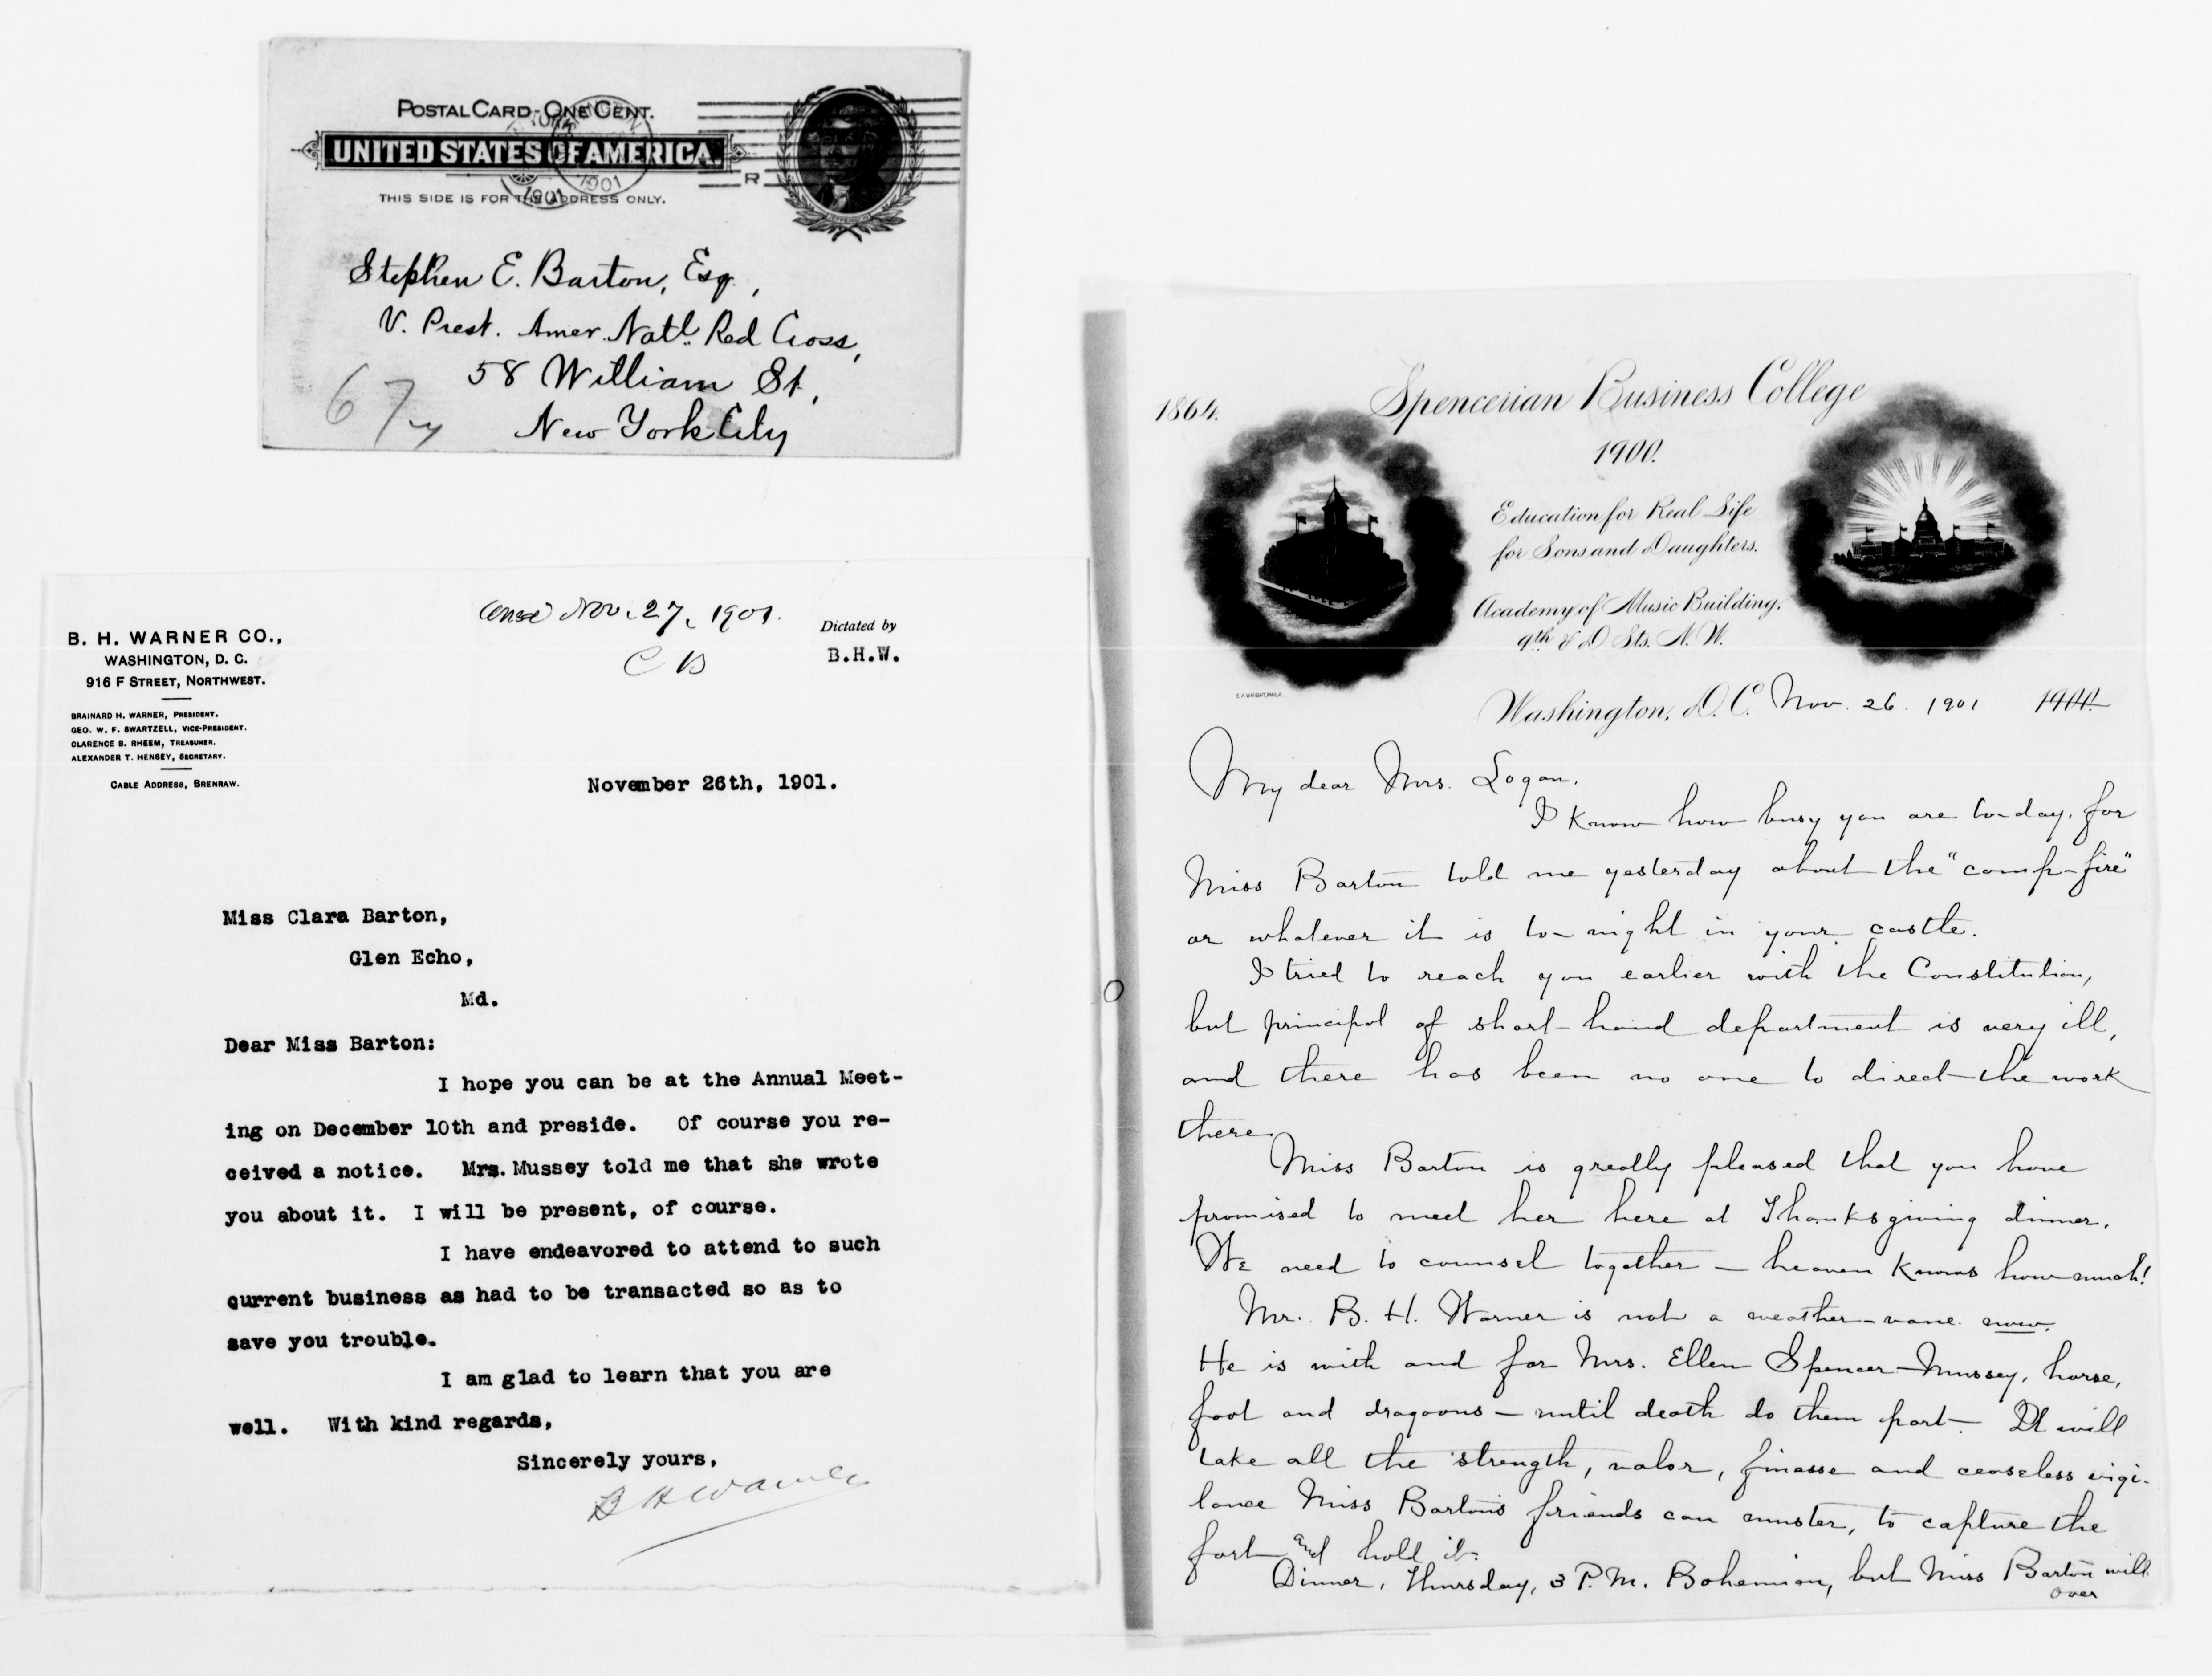 POSTAL CARD-ONE CENT.
UNITED STATES OF AMERICA.
THIS SIDE IS FOR THE ADDRESS ONLY.
1901
1901
R
Stephen E. Barton, Esq.,
V. Prest. Amer. Natl. Red Cross,
58 William St.,
New York City
67
B. H. WARNER CO.,
WASHINGTON, D. C.
916 F STREET, NORTHWEST.
BRAINARD H. WARNER, PRESIDENT.
GEO. W. F. SWARTZELL, VICE-PRESIDENT.
CLARENCE B. RHEEM, TREASURER.
ALEXANDER T. HENSEY, SECRETARY.
CABLE ADDRESS, BRENRAW.
Nov. 27, 1901.
C B
Dictated by
B.H.W.
November 26th, 1901.
Miss Clara Barton,
Glen Echo,
Md.
Dear Miss Barton:
I hope you can be at the Annual Meet-
ing on December 10th and preside. Of course you re-
ceived a notice. Mrs. Mussey told me that she wrote
you about it. I will be present, of course.
I have endeavored to attend to such
current business as had to be transacted so as to
save you trouble.
I am glad to learn that you are
well. With kind regards,
Sincerely yours,
B H Warner
1864.
Spencerian Business College
1900.
Education for Real Life
for Sons and Daughters.
Academy of Music Building,
9th & D Sts. N. W.
Washington, D. C. Nov. 26. 1901 1900.
My dear Mrs. Logan.
I know how busy you are to-day, for
Miss Barton told me yesterday about the "camp-fire"
or whatever it is to-night in your castle.
I tried to reach you earlier with the Constitution,
but principal of short-hand department is very ill,
and there has been no one to direct the work
there.
Miss Barton is greatly pleased that you have
promised to meet her here at Thanksgiving dinner.
We need to counsel together — heaven knows how much!
Mr. B. H. Warner is not a weather-vane now.
He is with and for Mrs. Ellen Spencer-Mussey, horse,
foot and dragoons — until death do them part. It will
take all the strength, valor, finesse and ceaseless vigi-
lance Miss Barton's friends can muster, to capture the
fort and hold it.
Dinner, Thursday, 3 P.M. Bohemian, but Miss Barton will
over